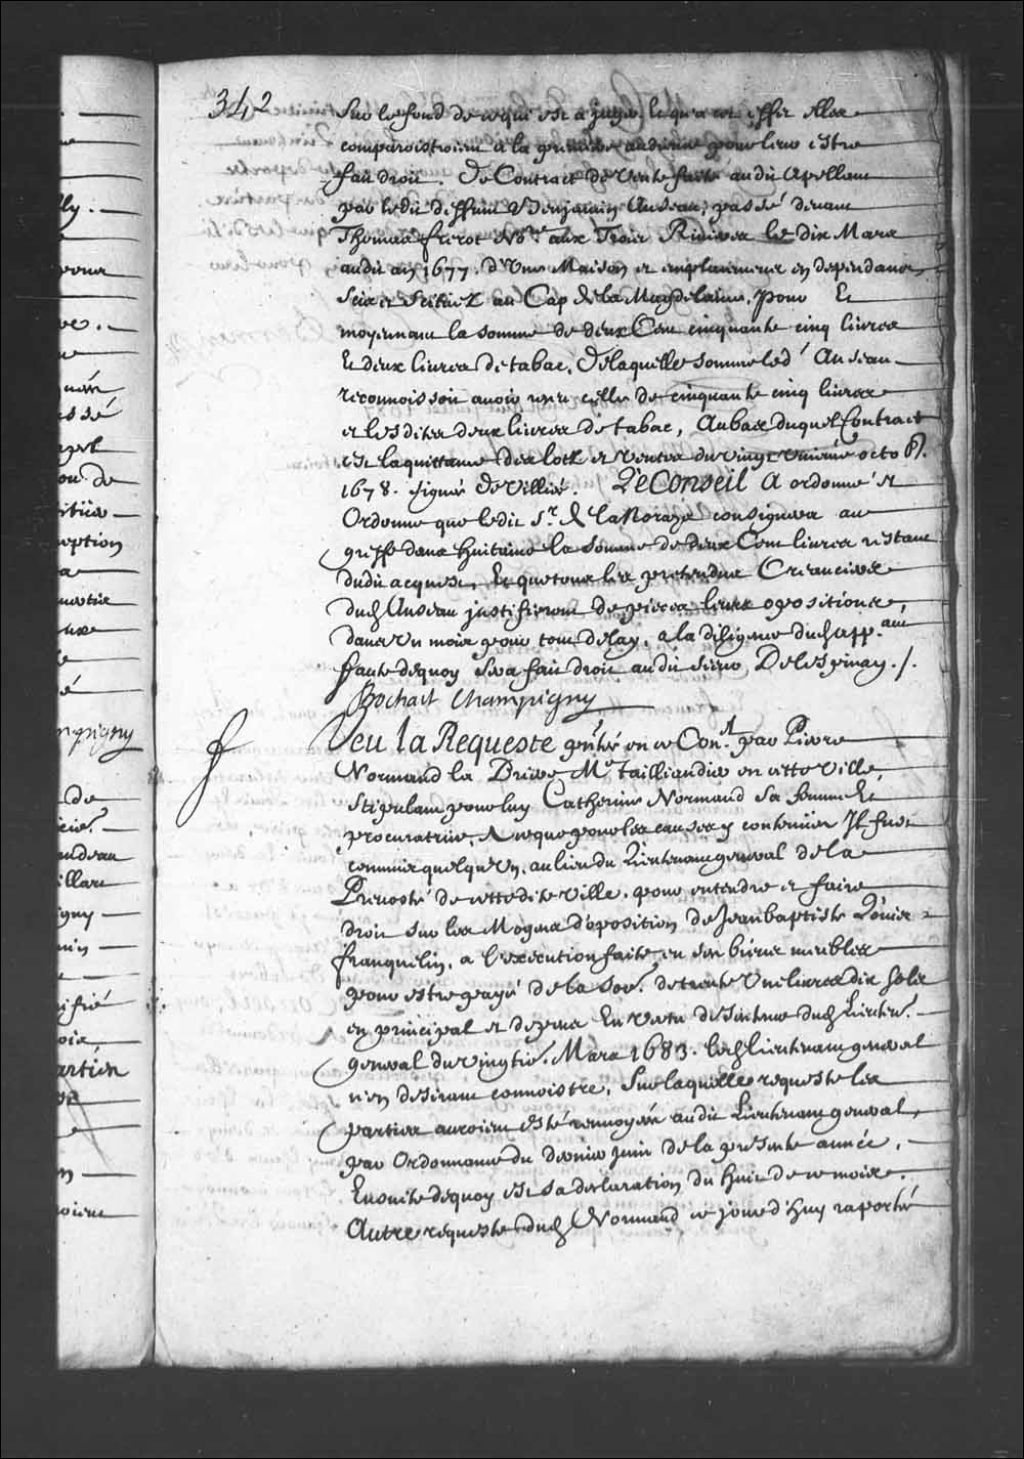 342
Sur le fond de ce qui est a juger, Lequ'a cet effet Elles
comparoistroient a la premiere audience pour leur estre
fait droit. Le Contract de Vente faite audit apellant
par ledit deffunt Benjamin Anseau, passé devant
Thomas frerot No.re aux Trois Rivieres le dix Mars
audit an 1677. d'Une Maison et emplacement en dependans
Scis et Scituez au Cap de la Magdelaine. Pour Et
moyennant la somme de deux Cent cinquante cinq livres
Et deux livres de tabac, De laquelle somme led' Anseau
reconnoissoit avoir reçu celle de cinquante cinq livres
et lesdites deux livres de tabac, Au bas duquel Contract
est la quittance des lotz et ventes du vingt uniéme octob.
1678. signée De Villiés. Le Conseil a ordonné et
Ordonne que ledit S.r de la Noraye consignera au
greffe dans huitaine la somme de deux Cent livres restant
dudit acquest, Et que tous les pretendus Creanciers
dud. Anseau justifieront de pieces leurs opositions,
dans Un mois pour tout delay, a la diligence dud. app.ant
faute dequoy sera fait droit audit sieur De Lespinay ./.
Bochart Champigny
Veu la Requeste p.ntée en ce Con.l par Pierre
Normand la Briere M.e taillandier en cette Ville,
Stipulant pour luy Catherine Normand sa femme Et
procuratrice, A ce que pour les causes y contenües Il fust
commis quelqu'Un, au lieu du Lieutenant general de la
Prevosté de cette dite Ville, pour entendre et faire
droit sur les Moyens d'oposition de Jean baptiste Loüis
franquelin, a l'execution faite en ses biens meubles
pour estre payé de la so.e de trente Une livres dix sols
en principal et depens En vertu de Sentence dud. Lieuten.t
general du vingtie. Mars 1683. led. Lieutenant general
n'en desirant connoistre, Sur laquelle requeste les
parties auroient esté renvoyées audit Lieutenant general,
par Ordonnance du dernier juin de la presente année,
Ensuite dequoy est sa declaration du huit de ce mois.
Autre requeste dud. Normand ce jourd'huy raporté